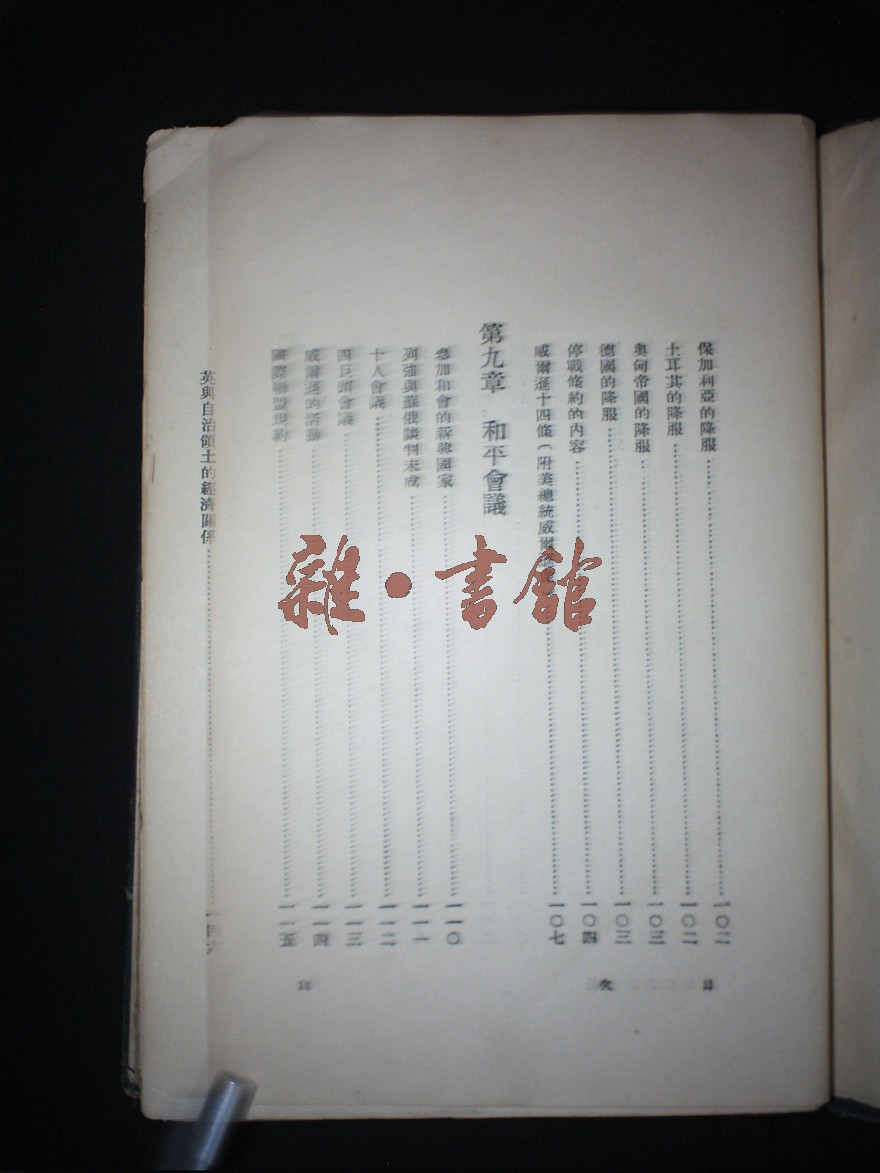 保加利亞的降服……一〇二
土耳其的降服……一〇二
奧匈帝國的降服……一〇三
德國的降服……一〇三
停戰條約的內容……一〇四
威爾遜十四條(附美總統威爾……一〇七
第九章 和平會議
參加和會的新興國家……一一〇
列強與蘇俄談判未成……一一一
十人會議……一一二
四巨頭會議……一一三
威爾遜的活動……一一四
國際聯盟規約……一一五
目 次
英與自治領土的經濟關係……一四六
雜·書館